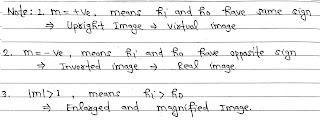 Note: 1. m = +ve, means hi and ho have same sign
⇒ Upright Image ⇒ virtual image
2. m = -ve, means hi and ho have opposite sign
⇒ Inverted image ⇒ Real image
3. |m|>1, means hi > ho
⇒ Enlarged and magnified Image.